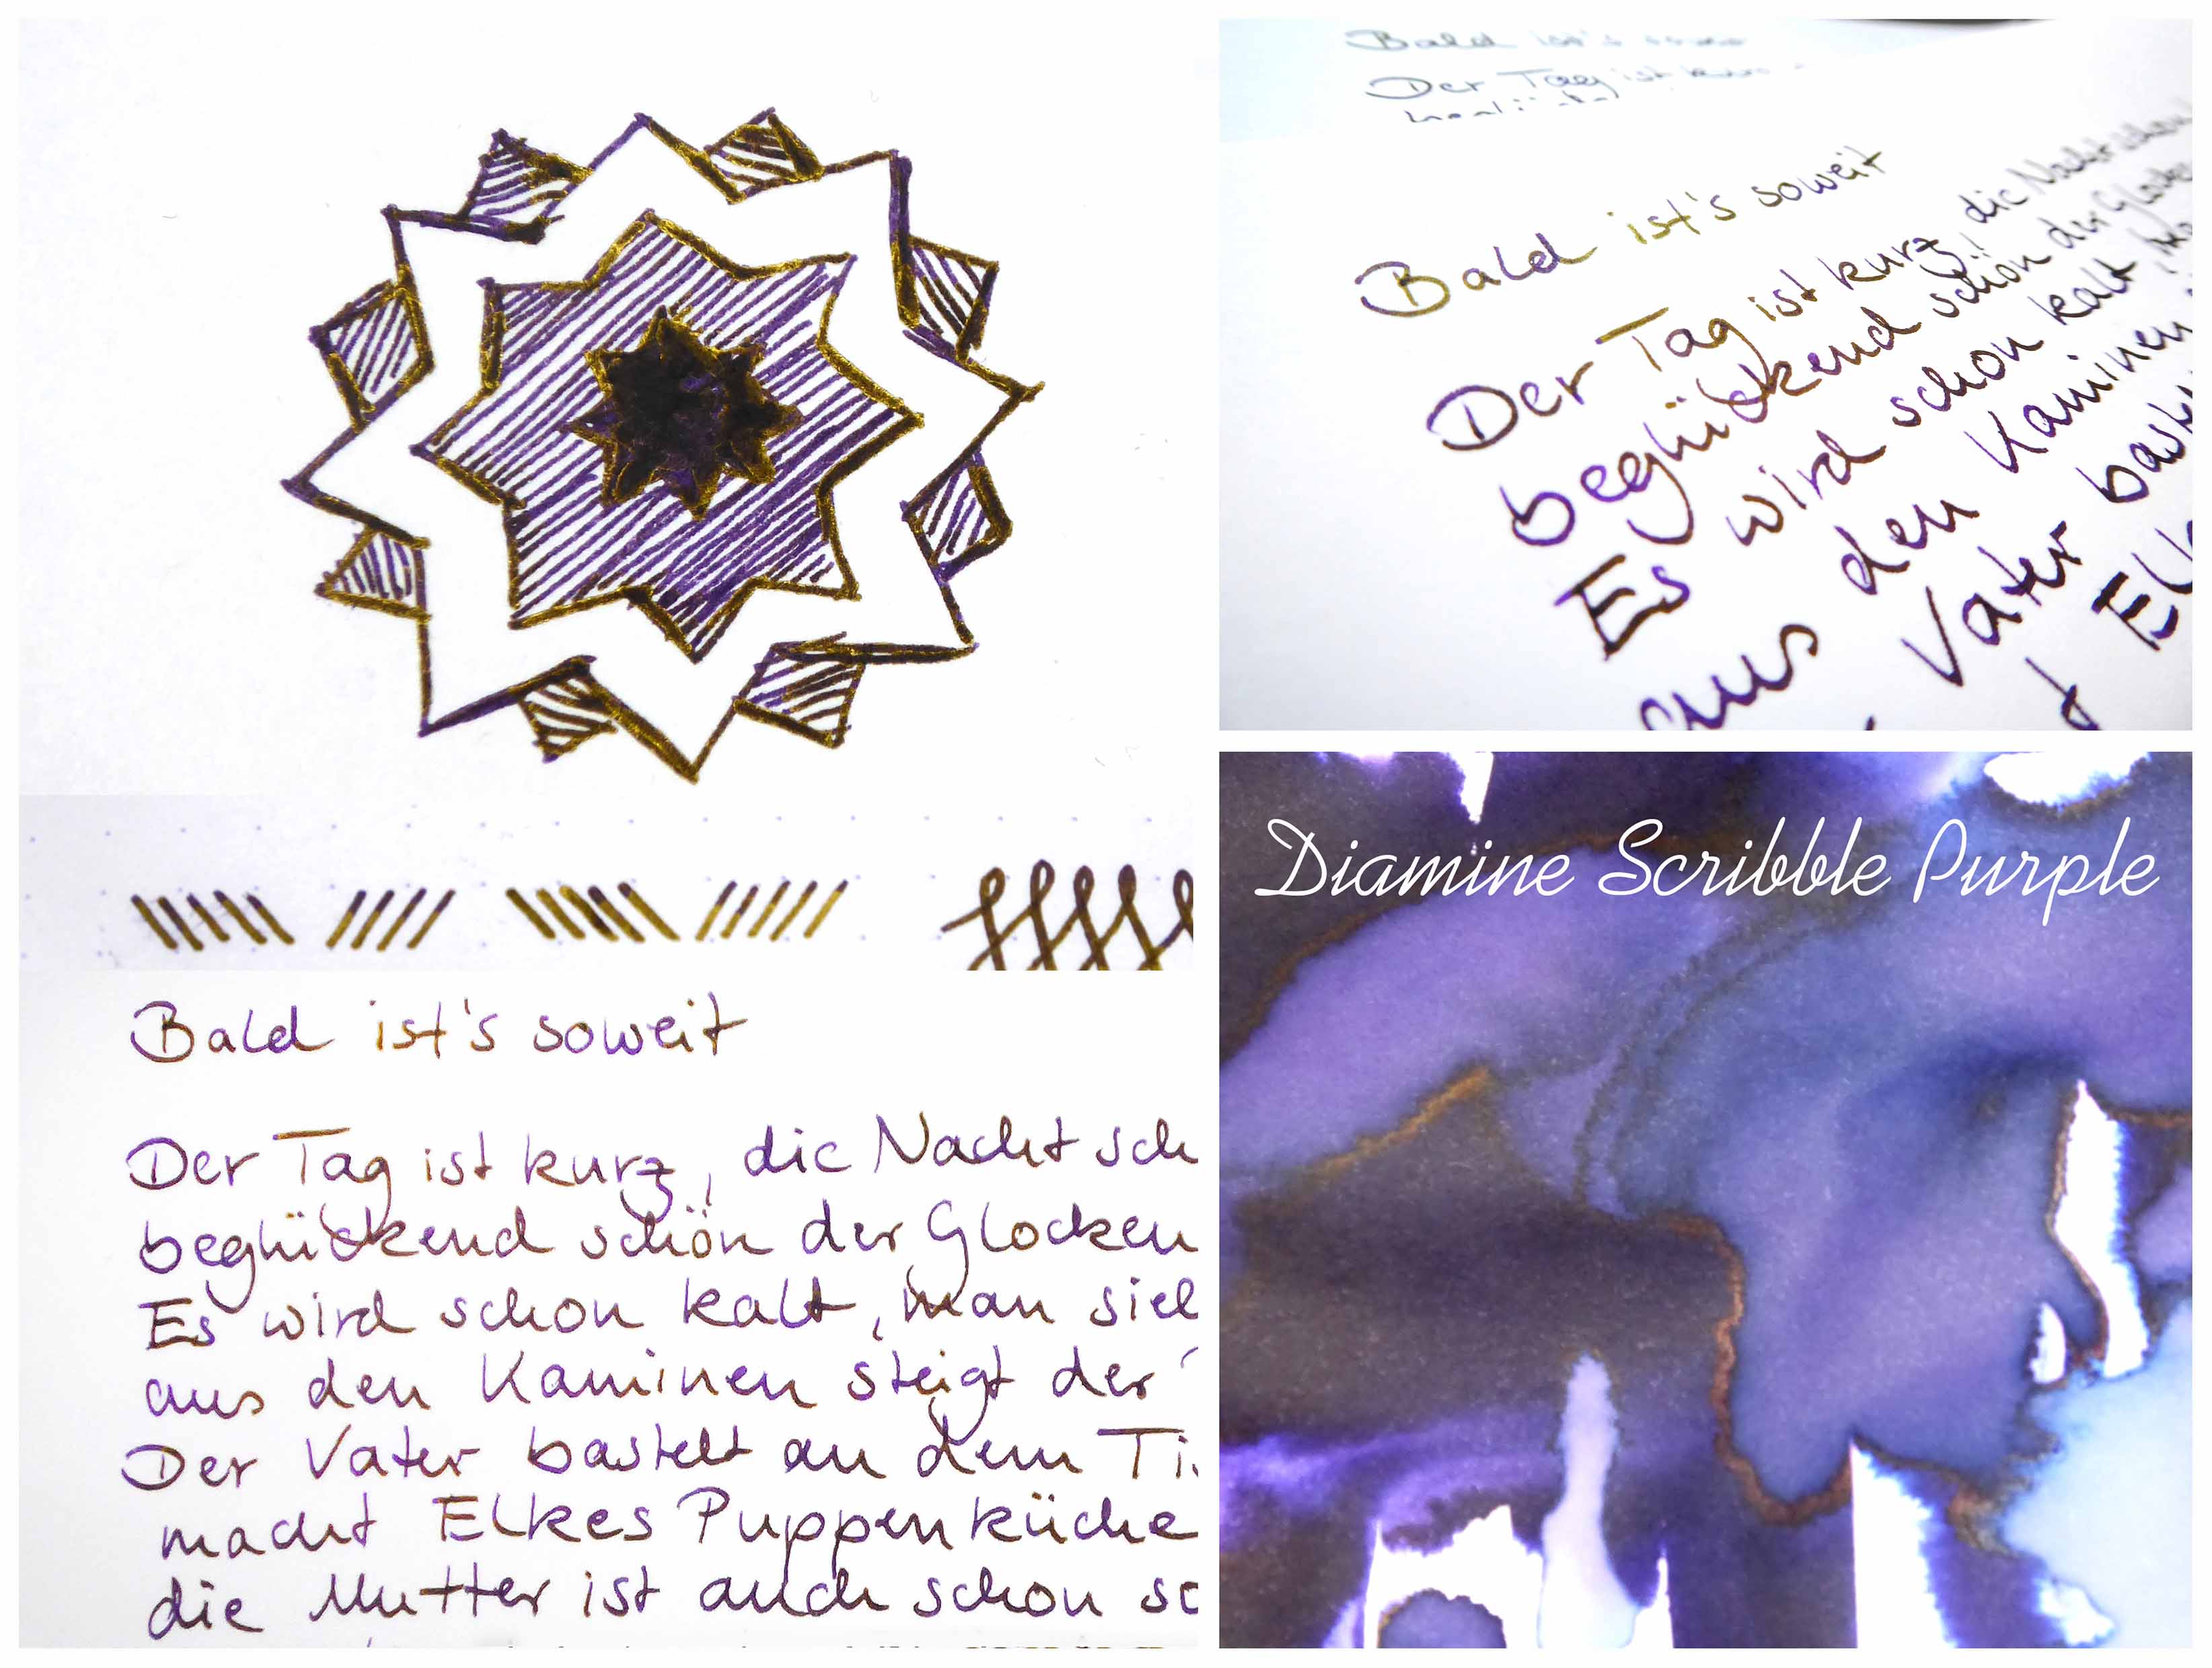 Bald ist's soweit
Der Tag ist kurz, die Nacht sch
beglückend schön der Glocken
Es wird schon kalt, man sieh
aus den Kaminen steigt der
Der Vater bastelt an dem Ti
macht Elkes Puppenküche
die Mutter ist auch schon so
Bald ist's
Der Tag ist kurz
Bald ist's soweit
Der Tag ist kurz, die Nacht schon
beglückend schön der Glocken
Es wird schon kalt,
aus den Kaminen
Vater bastelt
Elk
Diamine Scribble Purple